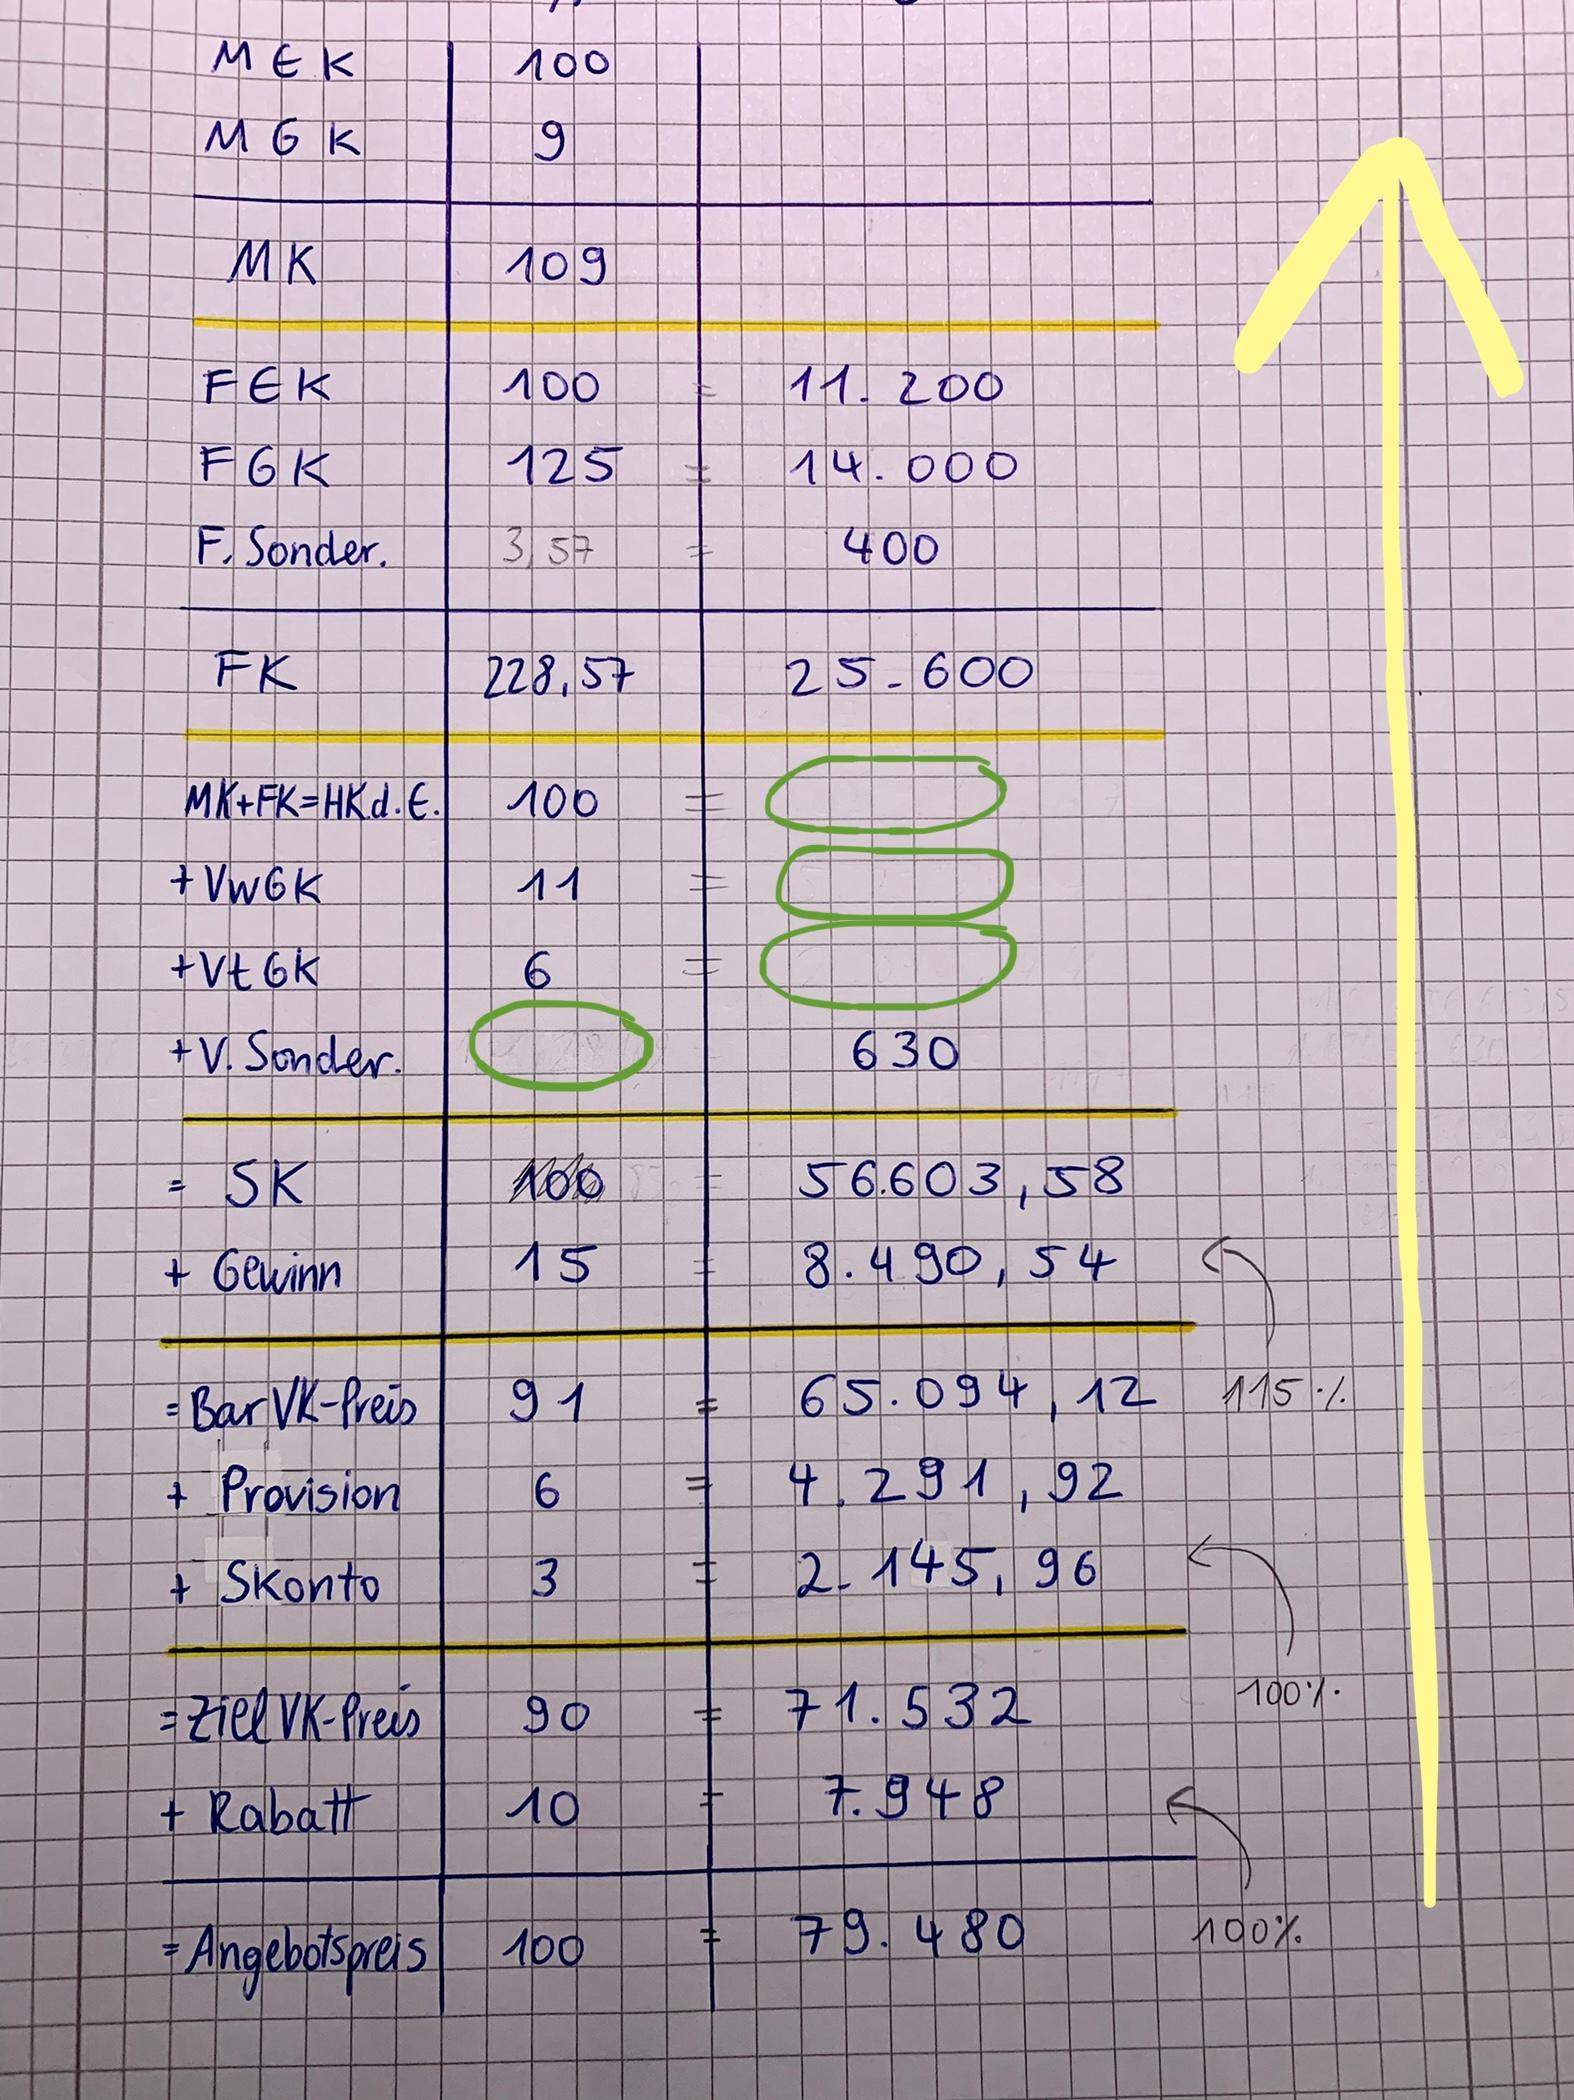 MEK 100
MGK 9
MK 109
FEK 100 = 11.200
FGK 125 = 14.000
F. Sonder. 3,57 = 400
FK 228,57 25.600
MK+FK=HKd.E. 100 =
+VwGK 11 =
+VtGK 6 =
+V. Sonder. 630
= SK 100 = 56.603,58
+ Gewinn 15 = 8.490,54
= Bar VK-Preis 91 = 65.094,12 115%
+ Provision 6 = 4.291,92
+ Skonto 3 = 2.145,96
= Ziel VK-Preis 90 = 71.532 100%.
+ Rabatt 10 = 7.948
= Angebotspreis 100 = 79.480 100%